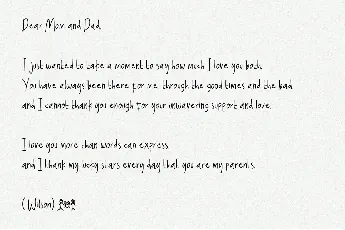 Dear Mom and Dad
I just wanted to take a moment to say how much I love you both.
You have always been there for me through the good times and the bad
and I cannot thank you enough for your unwavering support and love.
I love you more than words can express
and I thank my lucky stars every day that you are my parents.
(Wilson)